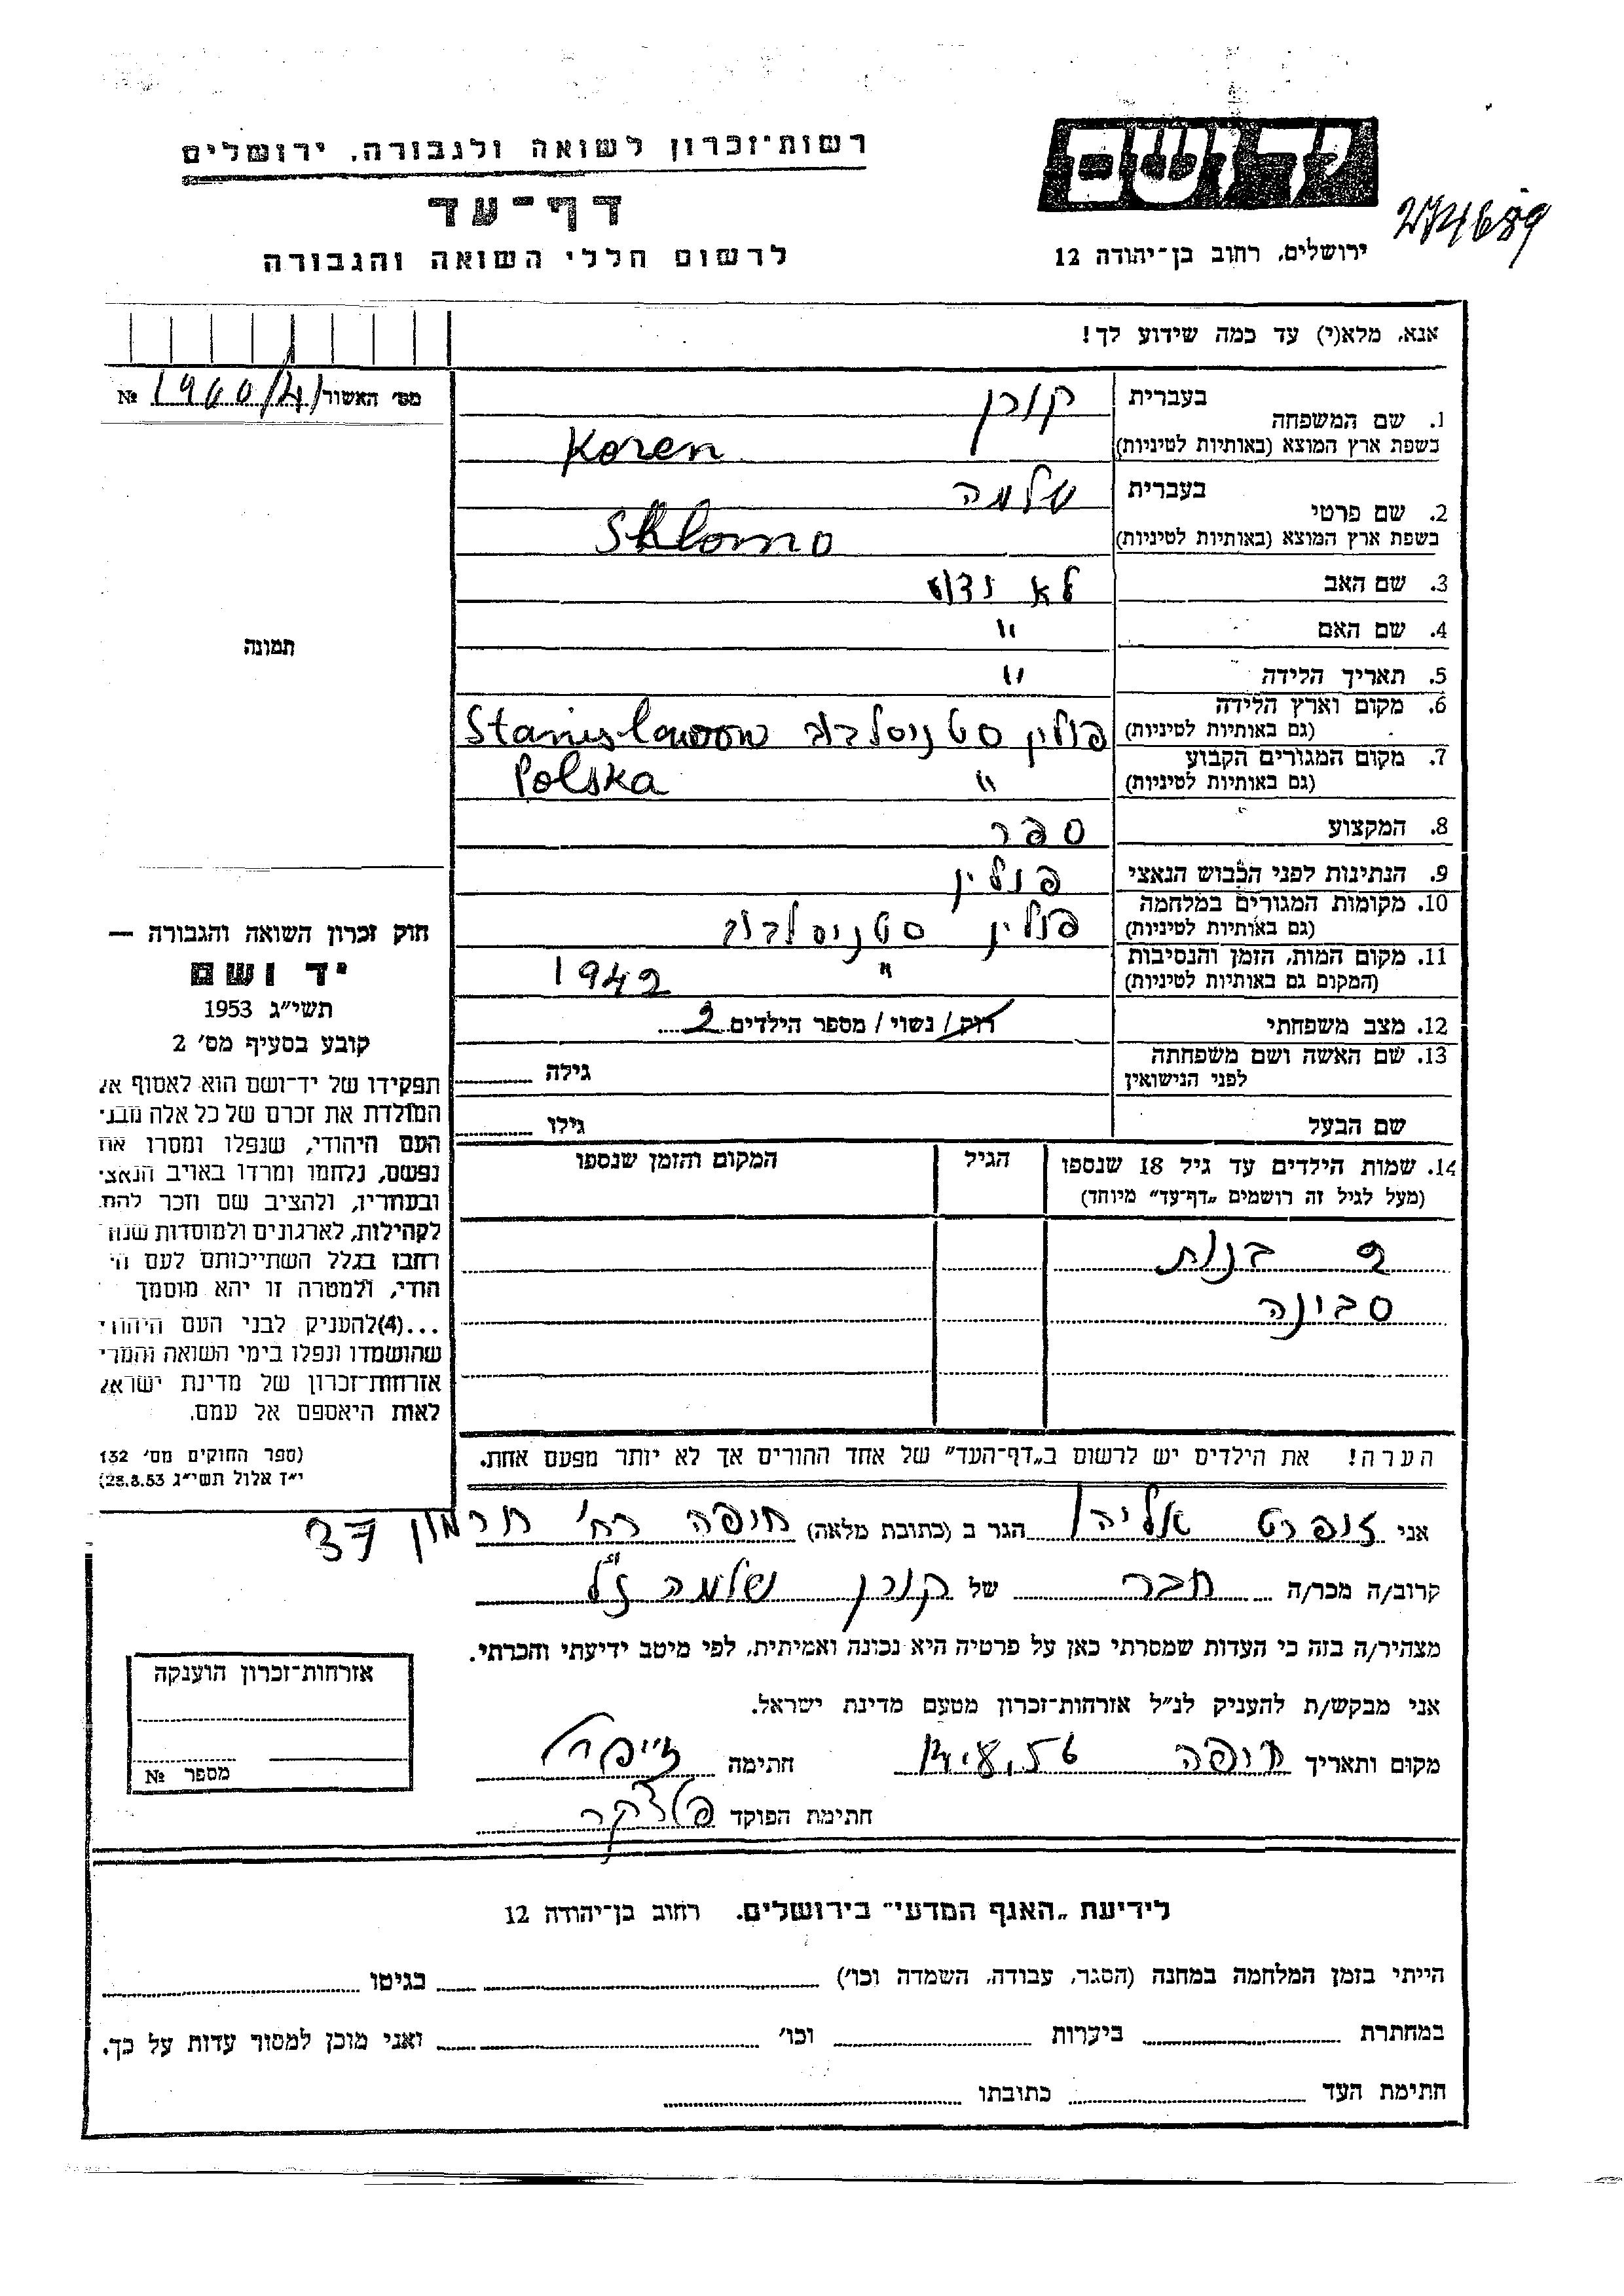 יד ושם
274689
רשות־זכרון לשואה ולגבורה, ירושלים
דף־עד
לרשום חללי השואה והגבורה
ירושלים, רחוב בן־יהודה 12
אנא, מלא(י) עד כמה שידוע לך!
מס׳ האשור 1960/41 №
1. שם המשפחה בעברית קורן
בשפת ארץ המוצא (באותיות לטיניות) Koren
2. שם פרטי בעברית שלמה
בשפת ארץ המוצא (באותיות לטיניות) Shlomo
3. שם האב לא ידוע
4. שם האם "
5. תאריך הלידה "
6. מקום וארץ הלידה (גם באותיות לטיניות) פולין סטניסלבוב Stanislawow
7. מקום המגורים הקבוע (גם באותיות לטיניות) " Polska
8. המקצוע ספר
9. הנתינות לפני הכבוש הנאצי פולין
10. מקומות המגורים במלחמה (גם באותיות לטיניות) פולין סטניסלבוב
11. מקום המות, הזמן והנסיבות (המקום גם באותיות לטיניות) " 1942
12. מצב משפחתי רוק / נשוי / מספר הילדים 2
13. שם האשה ושם משפחתה לפני הנישואין גילה
שם הבעל גילו
14. שמות הילדים עד גיל 18 שנספו (מעל לגיל זה רושמים „דף־עד״ מיוחד) הגיל המקום והזמן שנספו
2 בנות
סבינה
תמונה
חוק זכרון השואה והגבורה —
יד ושם
תשי״ג 1953
קובע בסעיף מס׳ 2
תפקידו של יד־ושם הוא לאסוף אל
המולדת את זכרם של כל אלה מבני
העם היהודי, שנפלו ומסרו את
נפשם, נלחמו ומרדו באויב הנאצי
ובעוזריו, ולהציב שם וזכר להם,
לקהילות, לארגונים ולמוסדות שנח
רחבו בגלל השתייכותם לעם הי
הודי, ולמטרה זו יהא מוסמך
...(4) להעניק לבני העם היהודי
שהושמדו ונפלו בימי השואה והמרי
אזרחות־זכרון של מדינת ישראל
לאות היאספם אל עמם.
(ספר החוקים מס׳ 132
י״ז אלול תשי״ג 28.8.53)
הערה! את הילדים יש לרשום ב„דף־העד״ של אחד ההורים אך לא יותר מפעם אחת.
אני זופרט אליהו הגר ב (כתובת מלאה) חיפה רח׳ חרמון 37
קרוב/ה מכר/ה חבר של קורן שלמה ז״ל
מצהיר/ה בזה כי העדות שמסרתי כאן על פרטיה היא נכונה ואמיתית, לפי מיטב ידיעתי והכרתי.
אני מבקש/ת להעניק לנ״ל אזרחות־זכרון מטעם מדינת ישראל.
מקום ותאריך חיפה חתימה
חתימת הפוקד
אזרחות־זכרון הוענקה
מספר №
לידיעת „האגף המדעי״ בירושלים, רחוב בן־יהודה 12
הייתי בזמן המלחמה במחנה (הסגר, עבודה, השמדה וכו׳) בגיטו
במחתרת ביערות וכו׳ ואני מוכן למסור עדות על כך.
חתימת העד כתובתו